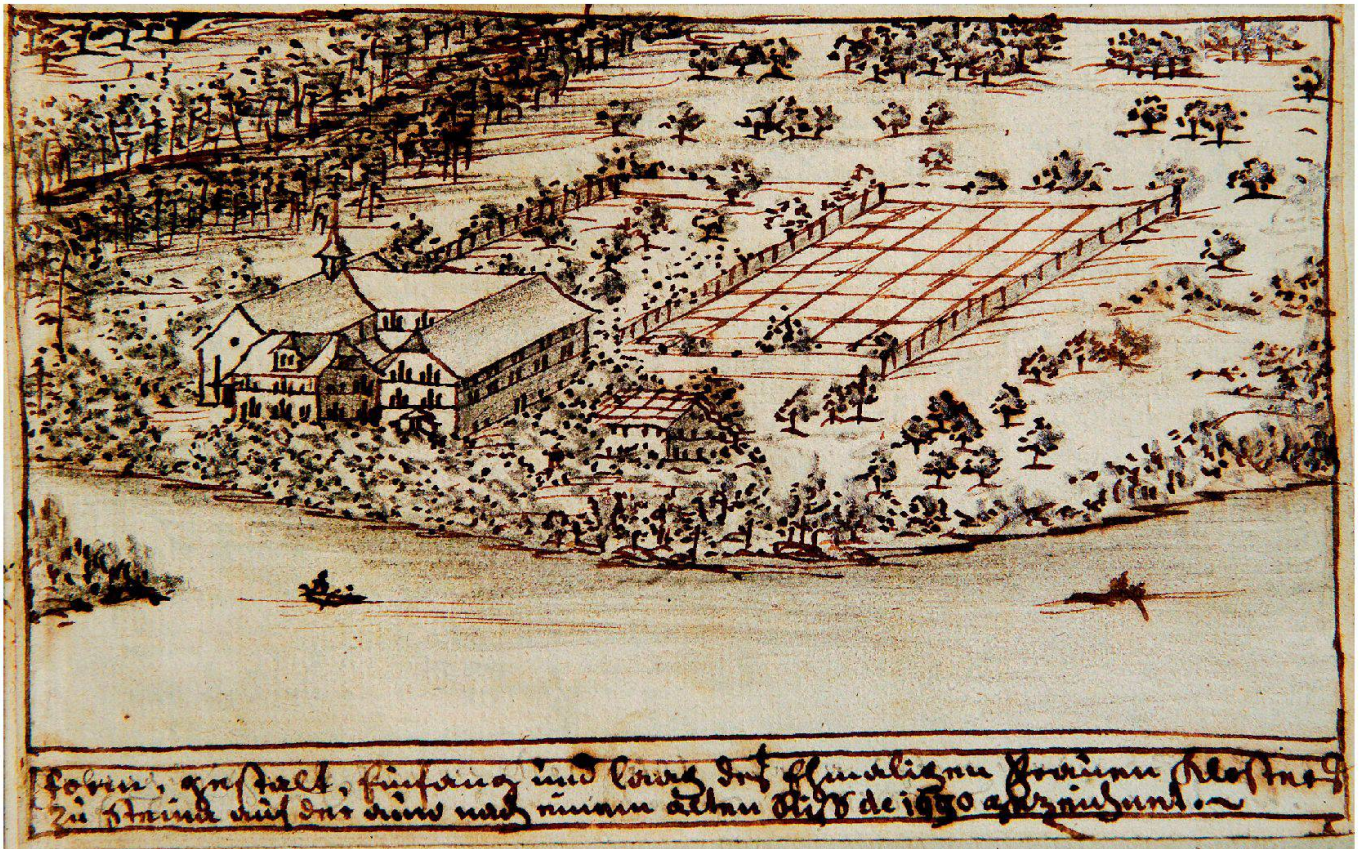 form, gestalt, Einfang und laag deß Ehmaligen Frauen Klosters
zu Steina auf der auw nach einem alten Riß de 1690 abgezeichnet.